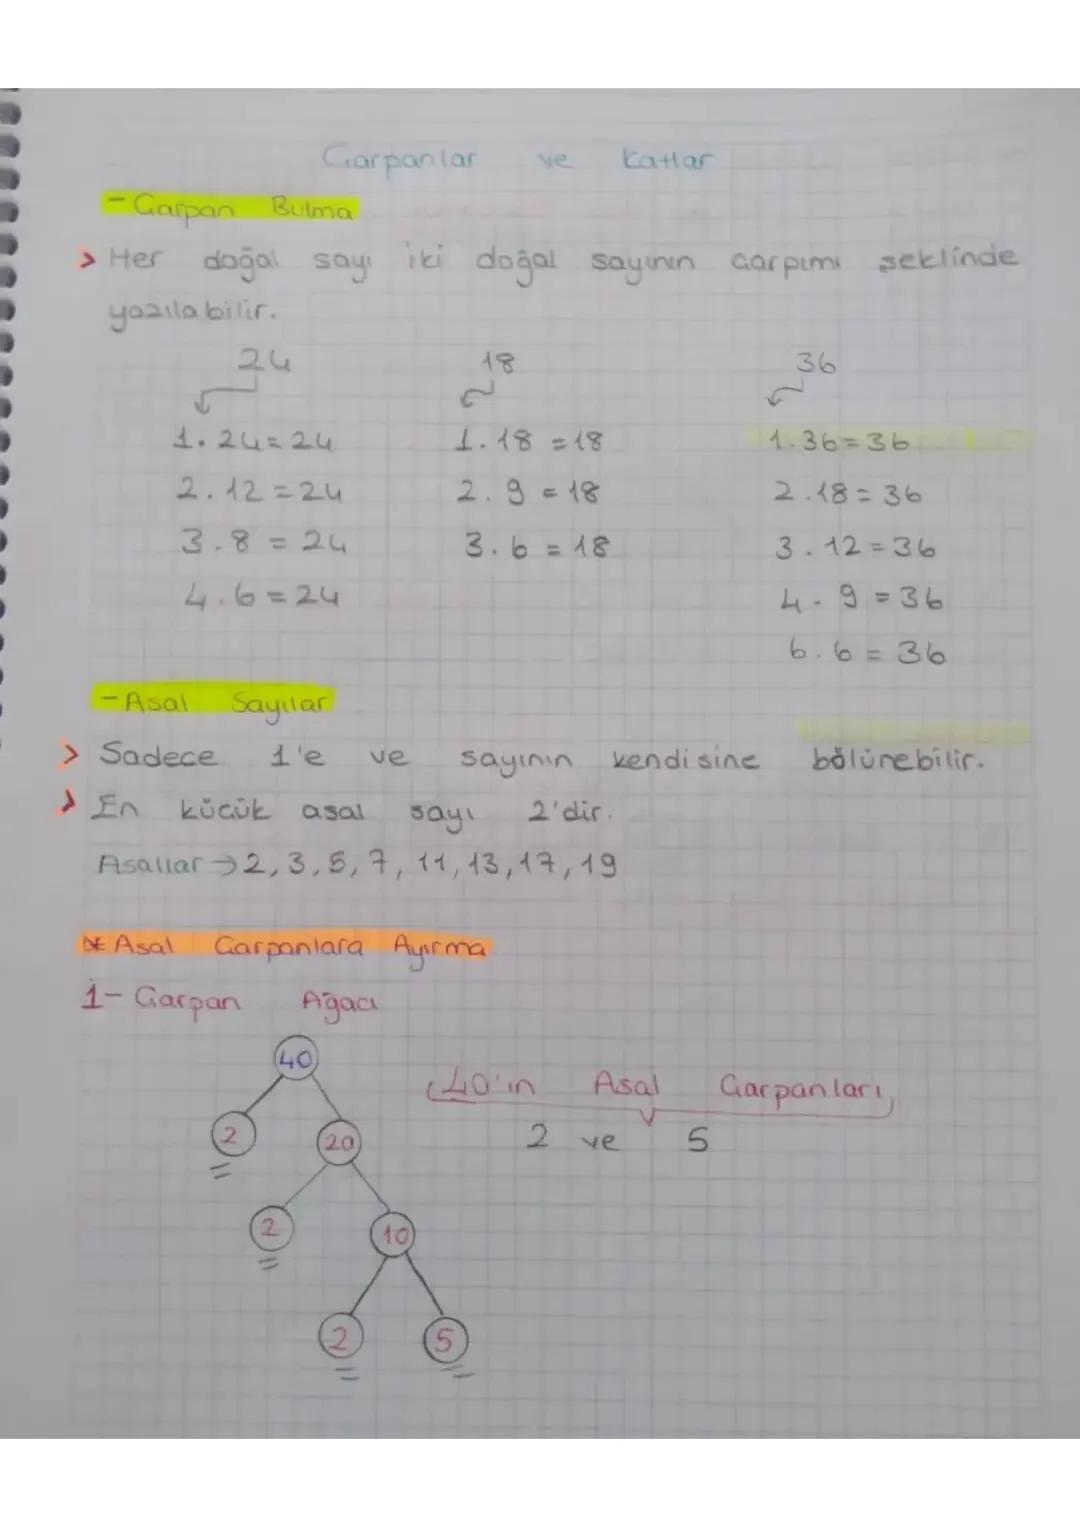 Çarpanlar ve Katlar
- Çarpan Bulma
> Her doğal sayı iki doğal sayının çarpımı şeklinde
yazılabilir.
24 18 36
1. 24 = 24 1. 18 = 18 1. 36 = 36
2. 12 = 24 2. 9 = 18 2. 18 = 36
3. 8 = 24 3. 6 = 18 3. 12 = 36
4. 6 = 24 4. 9 = 36
6. 6 = 36
- Asal Sayılar
> Sadece 1'e ve sayının kendisine bölünebilir.
> En küçük asal sayı 2'dir.
Asallar → 2, 3, 5, 7, 11, 13, 17, 19
Asal Çarpanlara Ayırma
1- Çarpan Ağacı
40
40'ın Asal Çarpanları
2 20
2 ve 5
2 10
2 5